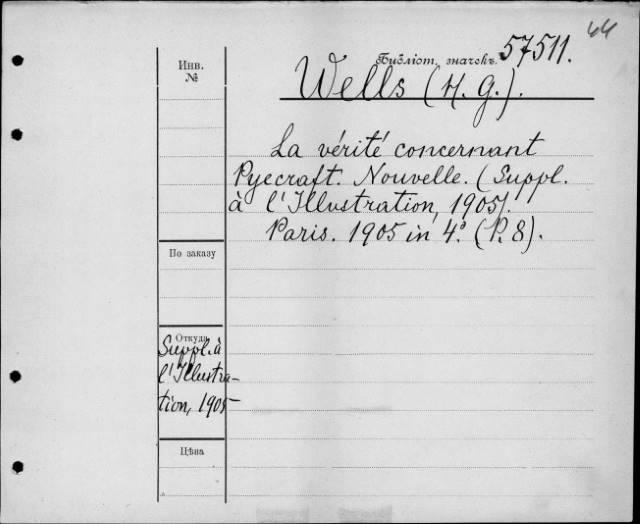 44
Инв.
№
Библіот. значекъ. 57511.
Wells (H. G.).
La vérité concernant
Pyecraft. Nouvelle. (Suppl.
à l'Illustration, 1905).
Paris. 1905 in 4º. (P. 8).
По заказу
Откуда
Suppl. à
l'Illustra-
tion, 1905
Цѣна